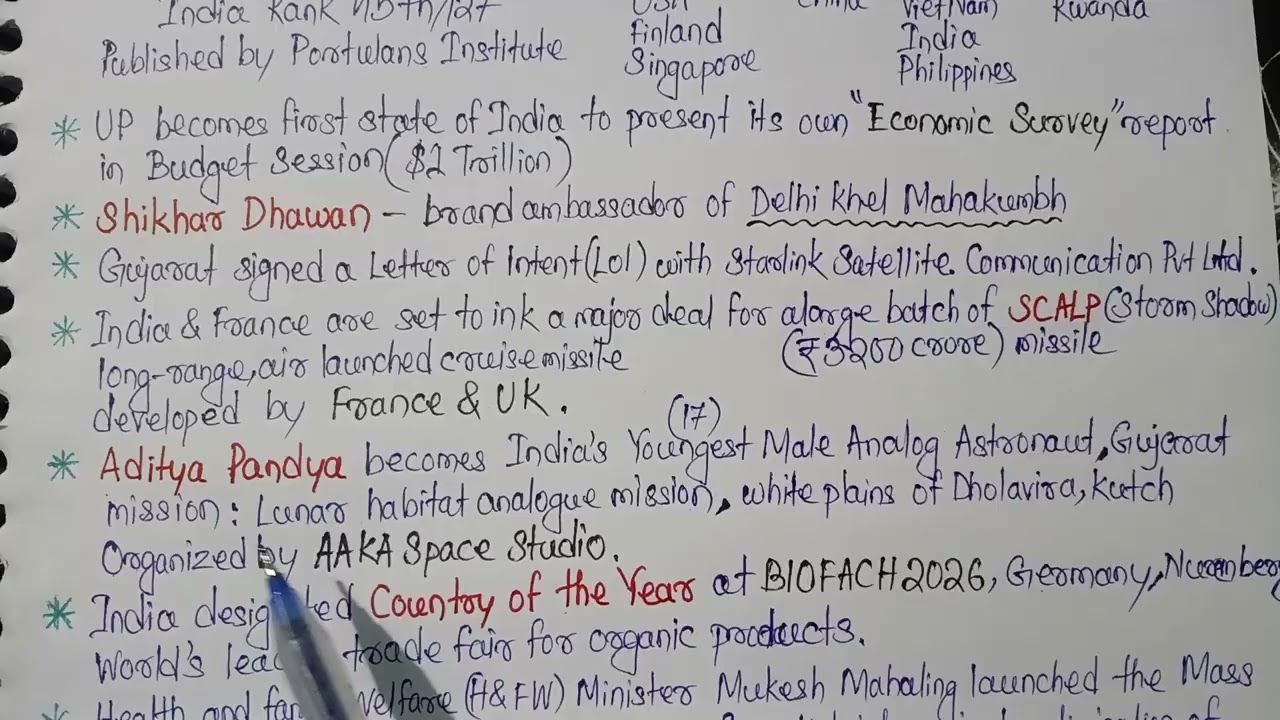 India Rank 45th/127
Published by Portulans Institute
USA
Finland
Singapore
China
Vietnam
India
Philippines
Rwanda
* UP becomes first state of India to present its own "Economic Survey" report
in Budget Session ($1 Trillion)
* Shikhar Dhawan - brand ambassador of Delhi Khel Mahakumbh
* Gujarat signed a Letter of Intent (LoI) with Starlink Satellite Communication Pvt Ltd.
* India & France are set to ink a major deal for a large batch of SCALP (Storm Shadow)
long-range, air launched cruise missile (₹3200 crore) missile
developed by France & UK.
(17)
* Aditya Pandya becomes India's Youngest Male Analog Astronaut, Gujarat
mission: Lunar habitat analogue mission, white plains of Dholavira, Kutch
Organized by AAKA Space Studio.
* India desig ted Country of the Year at BIOFACH 2026, Germany, Nuremberg
World's lead trade fair for organic products.
* Health and fam Welfare (H&FW) Minister Mukesh Mahaling launched the Mass